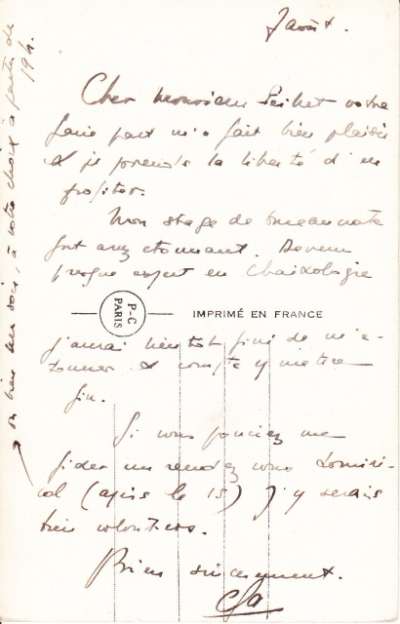 7 août.
Cher Monsieur votre
faire part m'a fait bien plaisir
et je prends la liberté d'en
profiter.
Mon stage de bureaucrate
fort assez étonnant. Devenu
presque expert en Chaixologie
P-C
PARIS
IMPRIMÉ EN FRANCE
j'aurai bientôt fini de m'é-
tonner et compte y mettre
fin.
Si vous pouviez me
fixer un rendez vous domini-
cal (après le 15) j'y serais
très volontiers.
Bien sincèrement.
→ ou bien un soir, à votre choix à partir de
19 h.